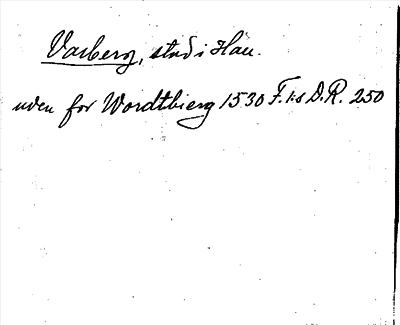 Varberg, stad i Hall.
uden for Wordtbierg 1530 F. I:s D.R. 250